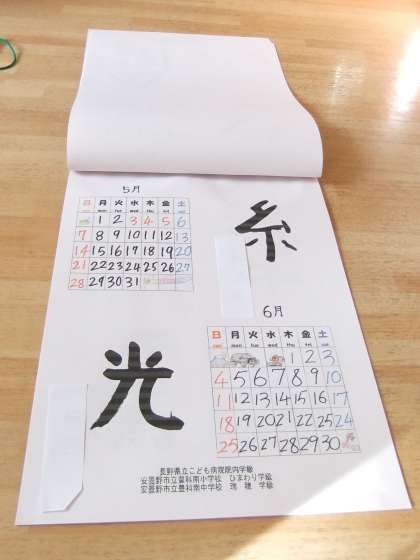 5月
日 月 火 水 木 金 土
1 2 3 4 5 6
7 8 9 10 11 12 13
14 15 16 17 18 19 20
21 22 23 24 25 26 27
28 29 30 31
糸
6月
日 月 火 水 木 金 土
sun mon tue wed thu fri sat
1 2 3
4 5 6 7 8 9 10
11 12 13 14 15 16 17
18 19 20 21 22 23 24
25 26 27 28 29 30
光
長野県立こども病院院内学級
安曇野市立豊科南小学校 ひまわり学級
安曇野市立豊科南中学校 瑞穂 学級